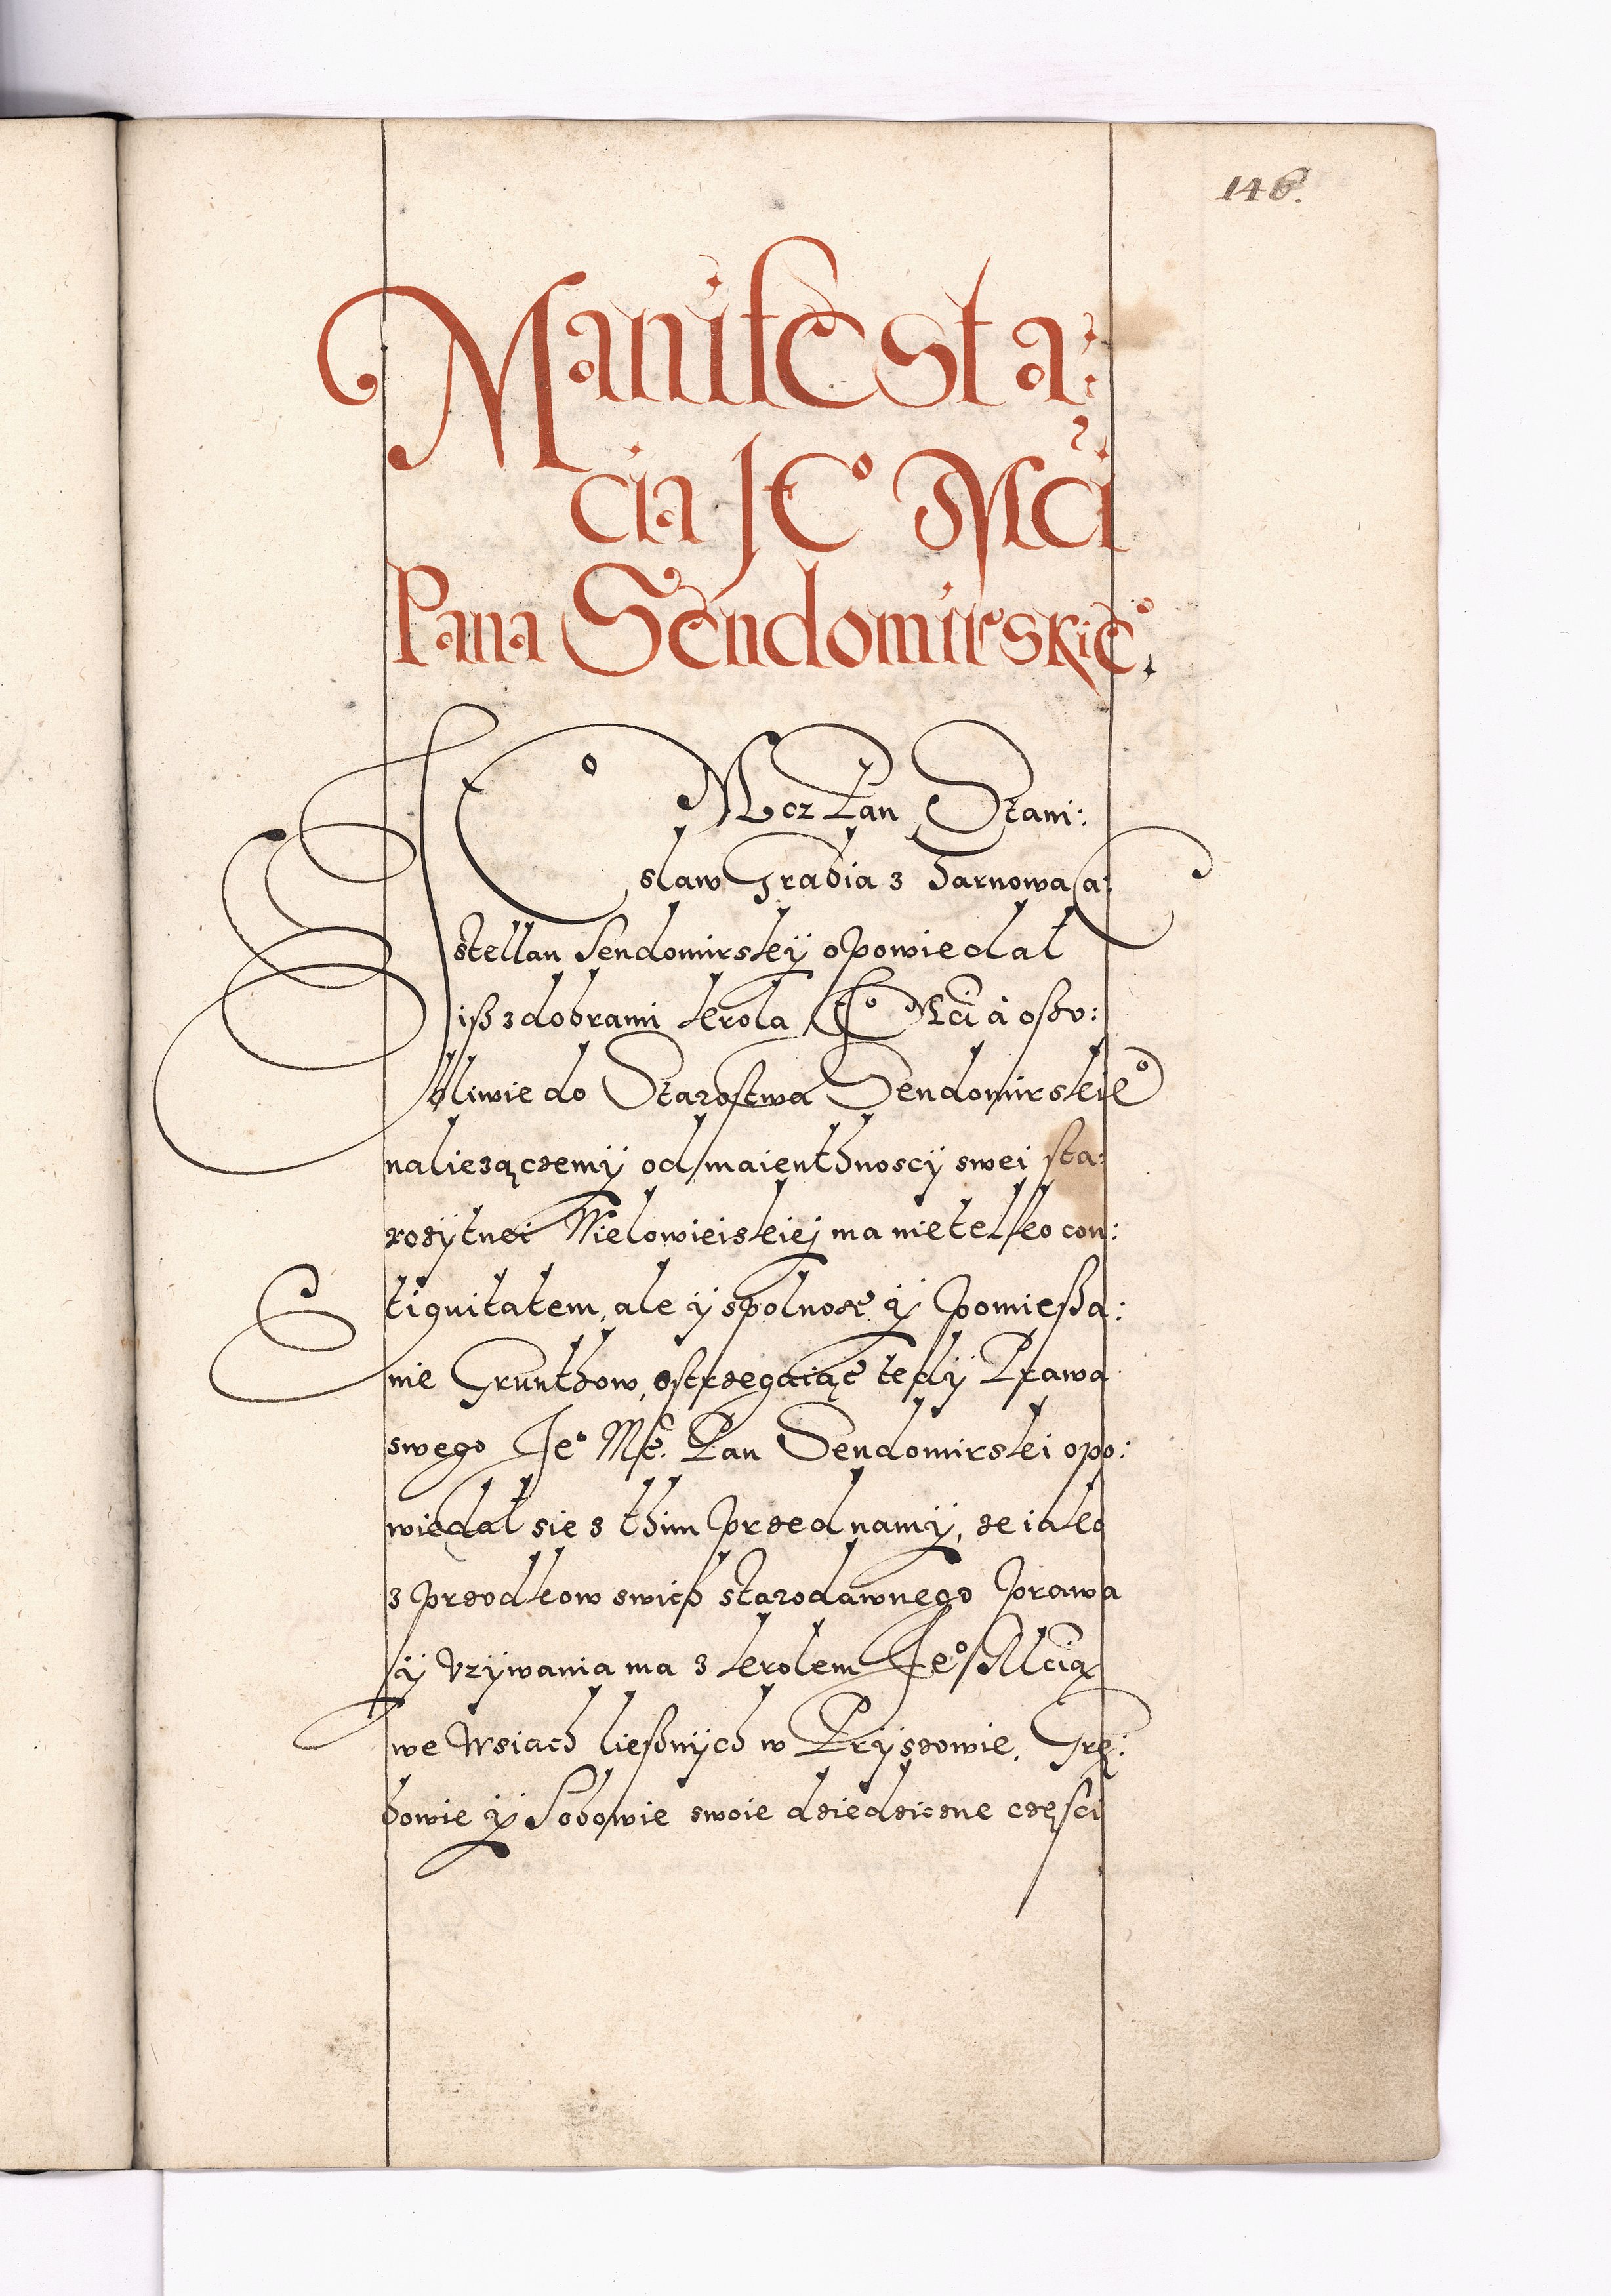 146.
Manifesta:
cia JEº Mći
Pana Sendomirskieº.
JEº Mcz Pan Stani:
slaw Grabia z Tarnowa Ca:
stellan Sendomirskÿ opowiedał
isz z dobrami krola JEº Mći á oszo:
bliwie do Starostwa Sendomirskieº
naliezączemÿ od maienthnoscÿ swei sta:
rozÿtnei Wielowieiskiej ma nietelko con:
tiguitatem, ale ÿ spolnosc ÿ pomiesza:
nie Grunthow, ostrzegaiąc tedÿ Prawa
swego Jeº Mć. Pan Sendomirski opo:
wiedał sie z thim przed namÿ, ze iako
z przodkow swich starodawnego prawa
ÿ vzÿwania ma z krolem Jeº Mcią
we wsiach liesznÿch w Prÿszowie, Grę:
bowie ÿ Sobowie swoie dziedziczne części